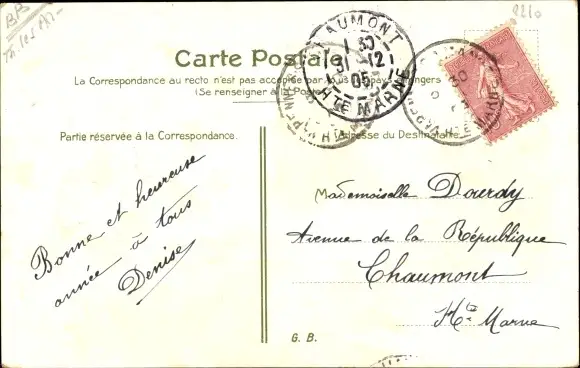 BB
2210
Carte Postale
La Correspondance au recto n'est pas acceptée par tous les pays étrangers
(Se renseigner à la Poste)
CHAUMONT
1 30
31 - 12
05
HTE MARNE
Partie réservée à la Correspondance.
Adresse du Destinataire.
Bonne et heureuse
année à tous
Denise
Mademoiselle Dourdy
Avenue de la République
Chaumont
Hte Marne
G. B.